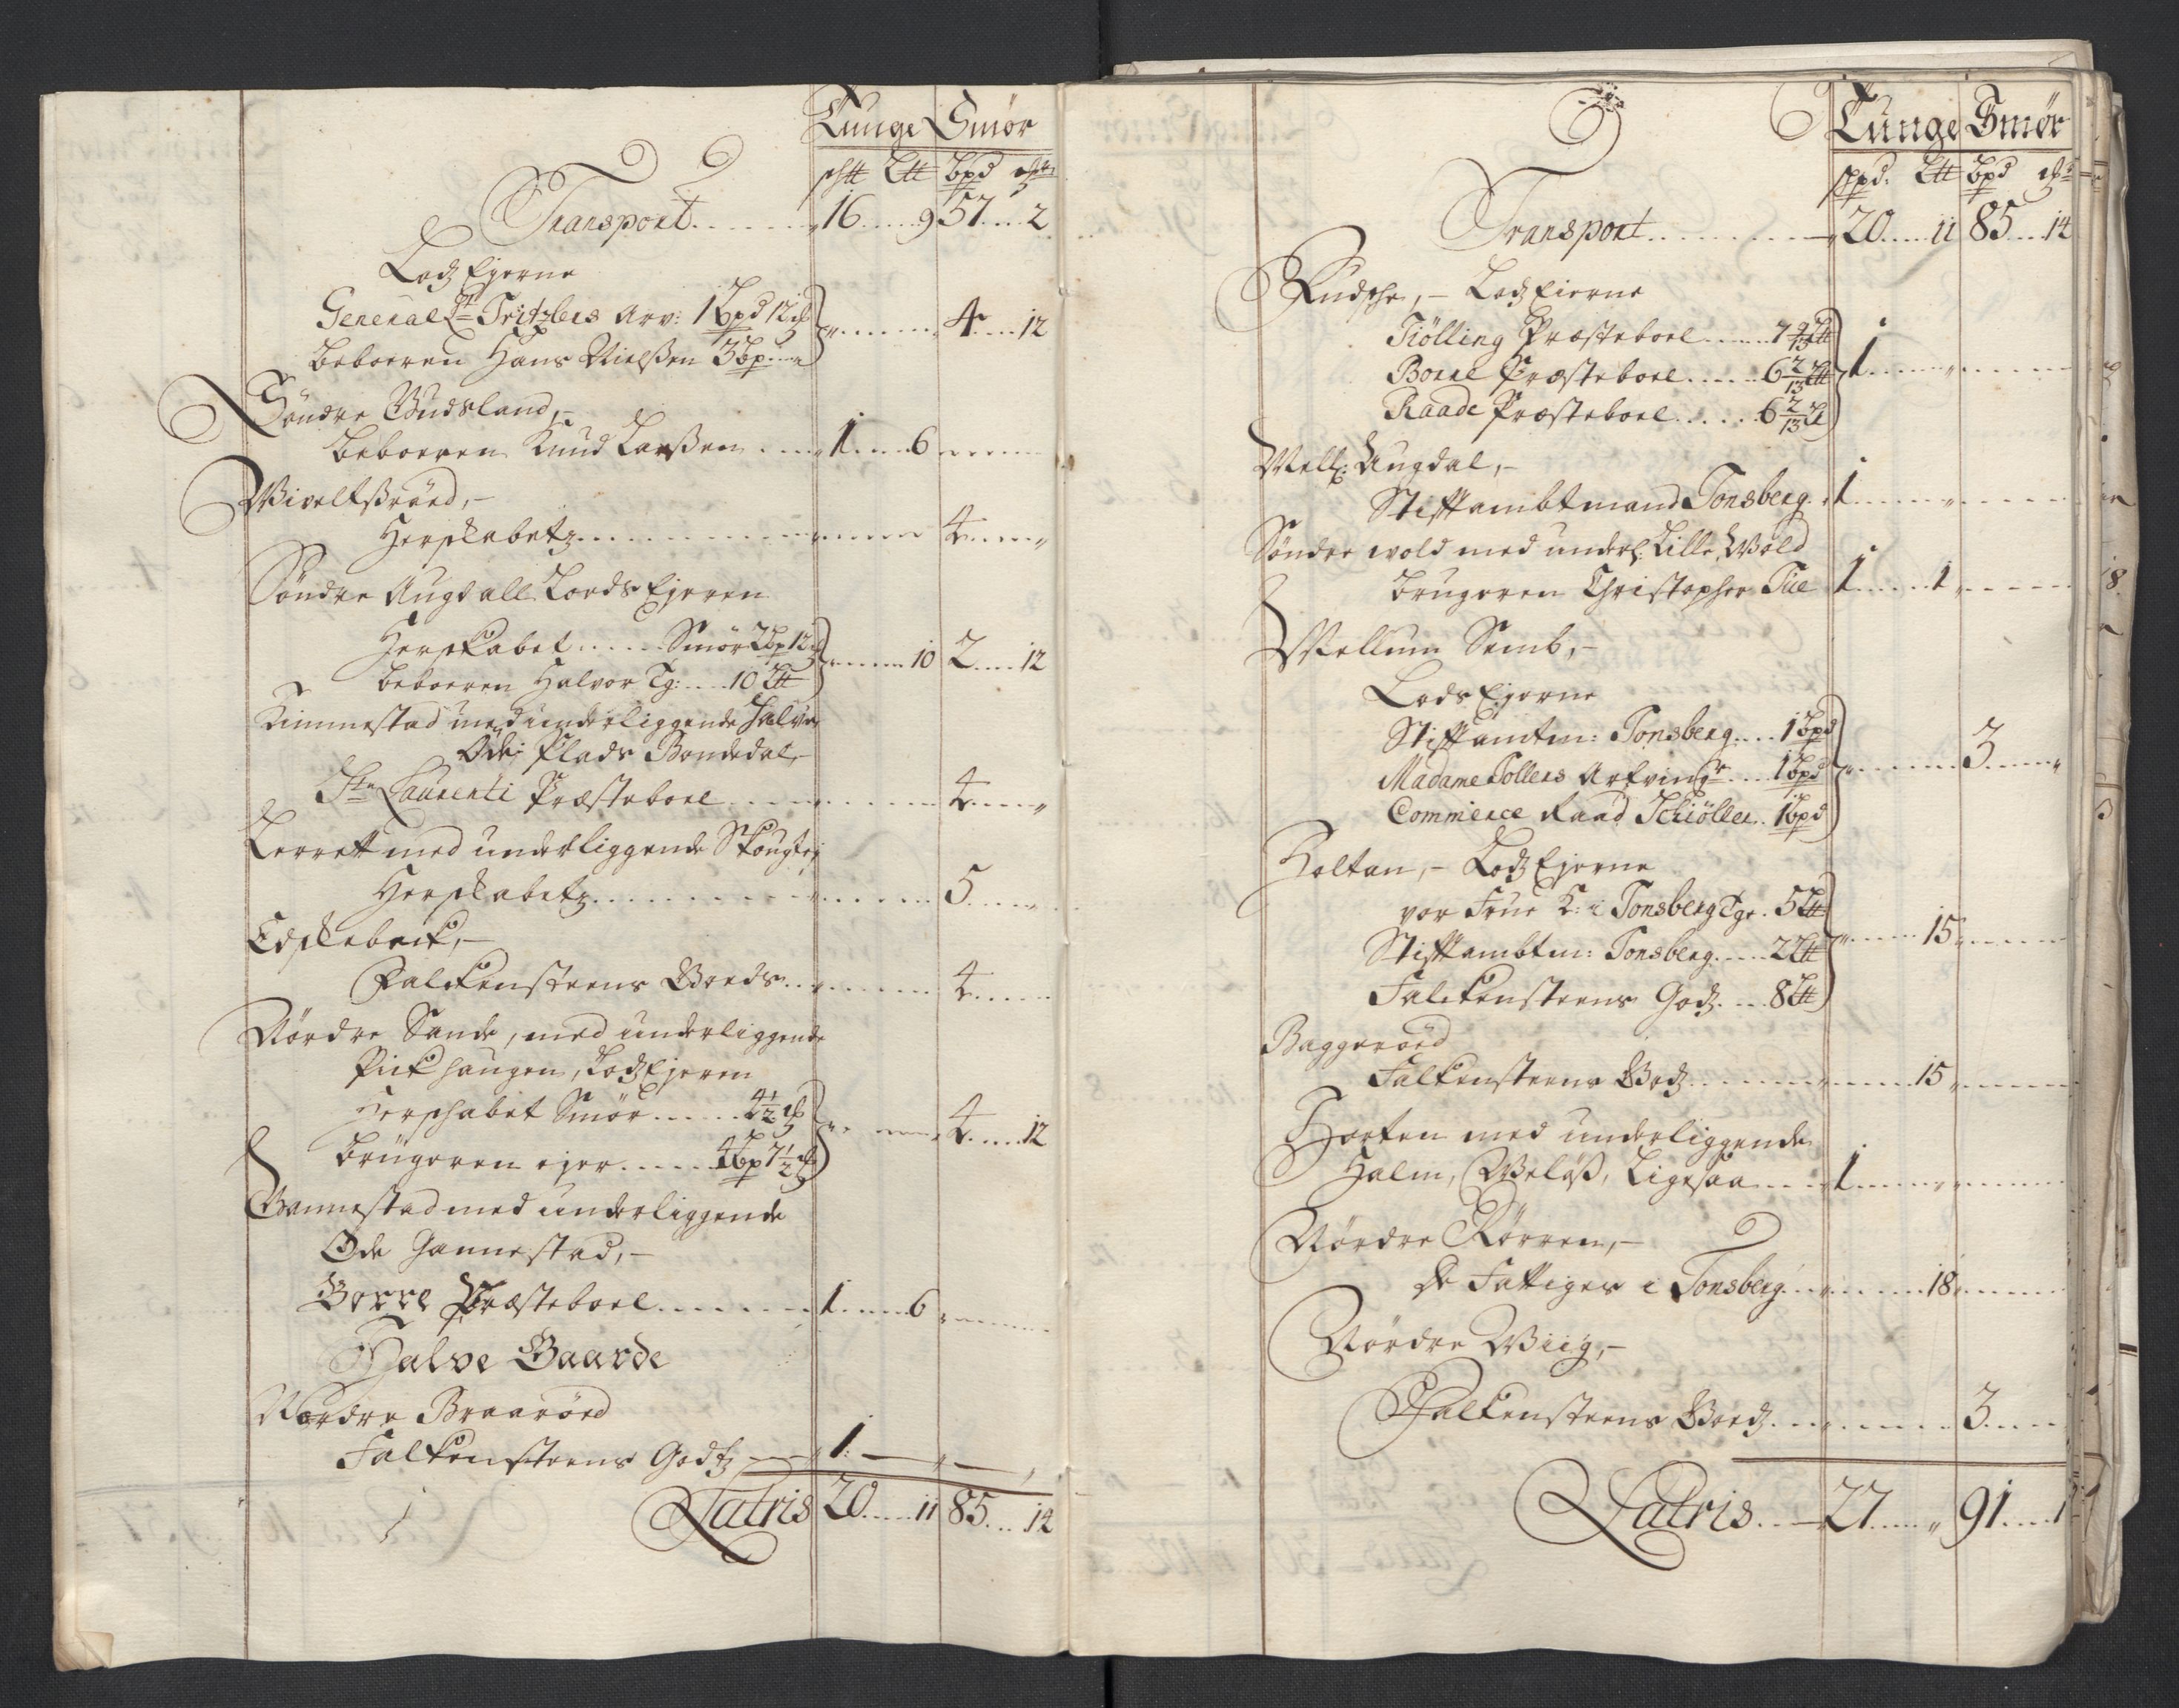 Tunge Smör
sh℔ L℔ bpd
Transport 16 9 57 2
Lodz Ejerne
General Lt Tritzlers Arv: 1 bpd 12
4 12
beboeren Hans Nielßen 3 bp
Söndre Gudsland,
beboeren Knud Larßen 1 6
Wiveltßröed,
Herskabetz 4
Söndre Augdall Lords Ejeren
Herskabet Smör 2 bp 12
10 2 12
beboeren Halvor Tg: 10 L℔
Kimmestad med underliggende Halve
Öde Plads Bondedal,
Stn Laurenti Præsteboel 4
Lerrett med underliggende Skougtej
Herskabetz 5
Edskebeck,
Falckensteens Goeds 4
Nördre Sande, med underliggende
Pirkhaugen, Lodz Ejeren
Herschabet Smör 4½
4 12
brugeren ejer 4 bp 7½
Gannestad med underliggende
Öde Gannestad,
Borre Præsteboel 1 6
Halve Gaarde
Nordre Braaröed
Falkensteens Godtz 1
Latris 20 11 85 14
Tunge Smör
shpd. L℔ bpd
Transport 20 11 85 14
Rudshe, Lodz Eierne
Tiölling Præsteboel 7 9/13 L℔
Borre Præsteboel 6 2/13 L℔ 1
Raade Præsteboel 6 2/13 L℔
Mell: Augdal,
Stiftambtmand Tonsberg 1
Söndre wold med underl: Lille Wold
brugeren Christopher Tue 1 1
Mellum Semb,
Lods Ejerne
Stiftamtm: Tonsberg 1 bpd
Madame Tollers Arfvinger 1 bpd 3
Commerce Raad Schiöller 1 bpd
Holtan, Lodz Ejerne
vor Frue K: i Tonsberg Tge 5 L℔
Stiftambtm: Tonsberg 2 L℔ 15
Falckensteens Godz 8 L℔
Baggeröed
Falkensteens Godz 15
Horten med underliggende
Halm, Weløß, Ligesaa 1
Nördre Rörren,
De Fattiges i Tonsberg 18
Nördre Wiig,
Falkensteens Goedz 3
Latris 27 91 1